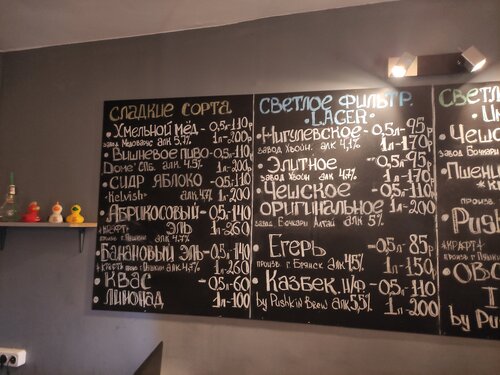 СЛАДКИЕ СОРТА
• Хмельной мёд - 0,5л-110р
завод Медоварус алк 5,7% 1л-200р
• Вишневое пиво - 0,5-110
Dome СПб. алк 4.5% 1л-200
• СИДР ЯБЛОКО - 0,5-110
• Kelvish • алк 4,7% 1л 200
• Абрикосовый - 0,5-140
• КРАФТ • ЭЛЬ 1л-260
произв г. Пушкин алк 4.7%
• Банановый эль - 0,5-140
• КРАФТ произв г. Пушкин алк 4.7% 1л-260
• КВАС - 0,5-60
• ЛИМОНАД 1л-100
СВЕТЛОЕ ФИЛЬТР.
• LAGER •
• Жигулевское - 0,5л-95р
завод Хвойн. алк 4,1% 1л-170р
• Элитное - 0,5л-95р
завод Хвойн алк 4,7% 1л-170
• Чешское - 0,5л-110
оригинальное 1л-200
завод Бочкари Алтай алк 5%
• Егерь - 0,5л 85р
произв. г. Брянск алк 4,5% 1л-150
• Казбек. Н/Ф - 0,5л-110
by Pushkin Brew алк 5,5% 1л-200
СВЕТЛО
• Чешс
завод Бочкари
• Пшени
произв
• КРАФТ •
произв г. Пушки
by Pu